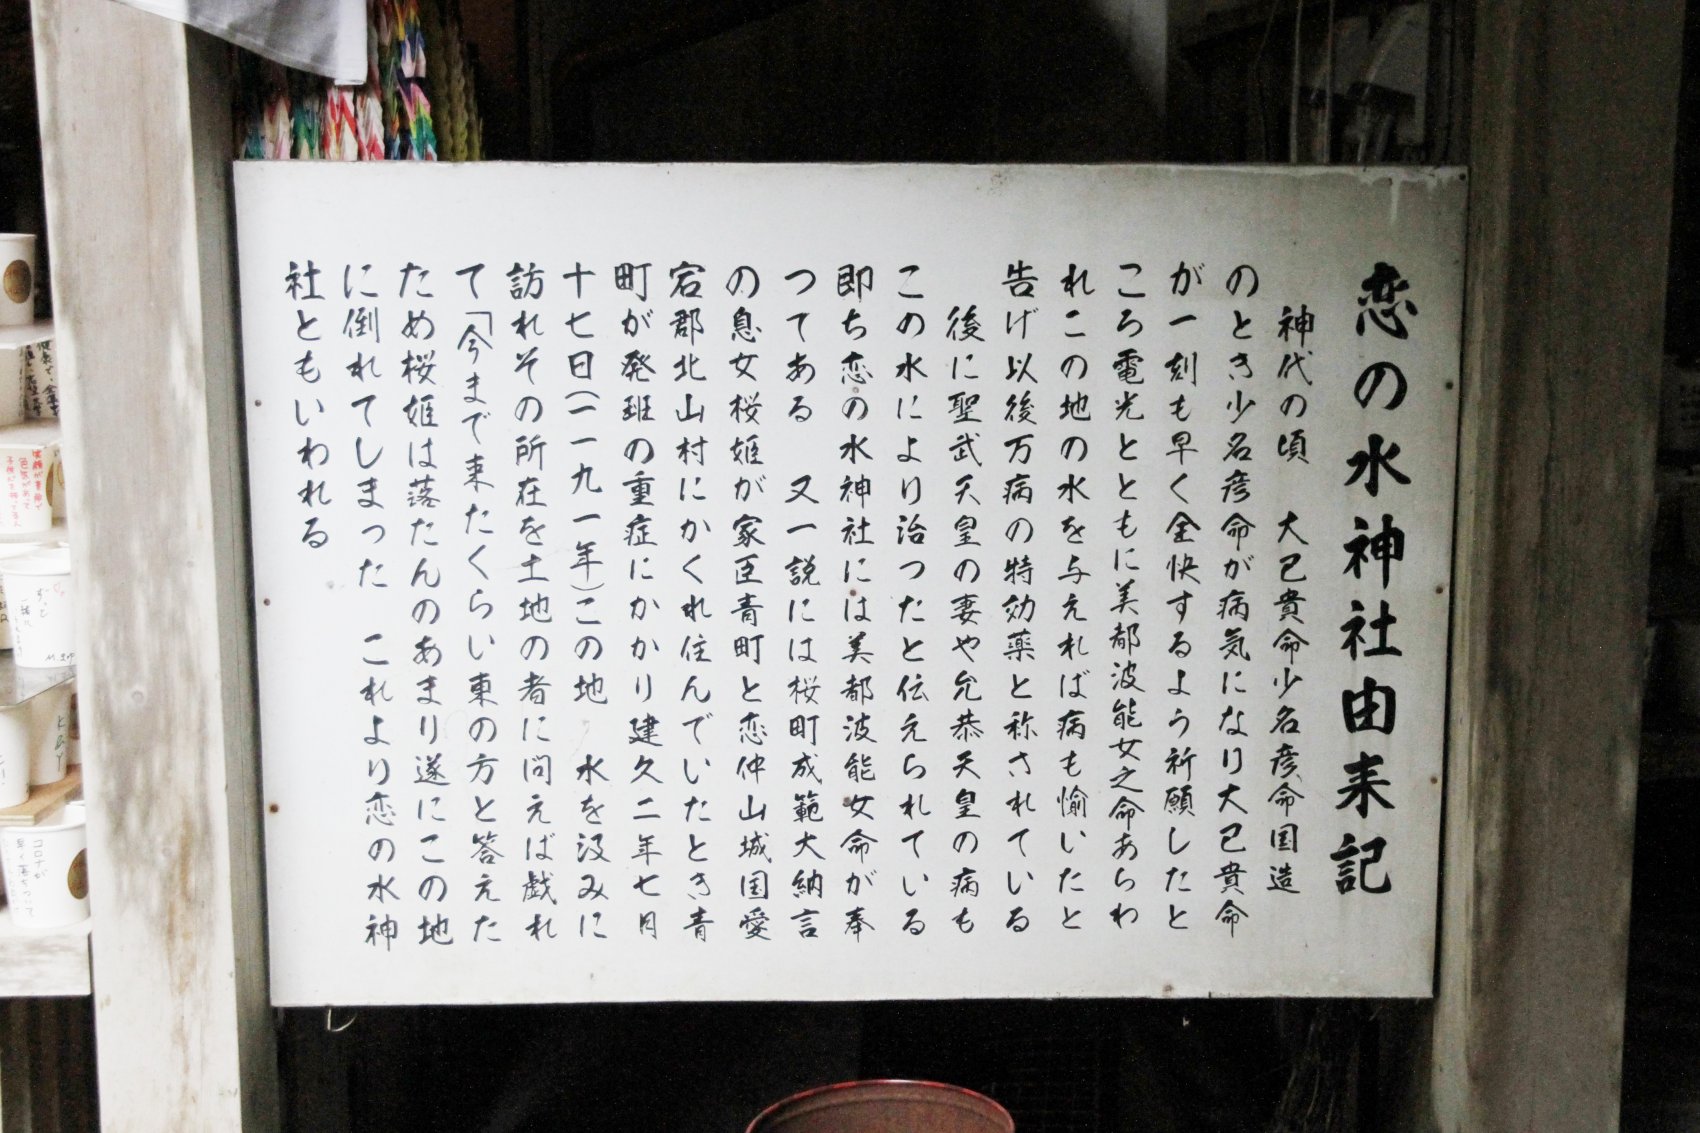 恋の水神社由来記
神代の頃　大己貴命少名彦命国造
のとき少名彦命が病気になり大己貴命
が一刻も早く全快するよう祈願したと
ころ電光とともに美都波能女之命あらわ
れこの地の水を与えれば病も愉いたと
告げ以後万病の特効薬と称されている
後に聖武天皇の妻や允恭天皇の病も
この水により治つたと伝えられている
即ち恋の水神社には美都波能女命が奉
つてある　又一説には桜町成範大納言
の息女桜姫が家臣青町と恋仲山城国愛
宕郡北山村にかくれ住んでいたとき青
町が発班の重症にかかり建久二年七月
十七日(一一九一年)この地　水を汲みに
訪れその所在を土地の者に問えば戯れ
て「今まで来たくらい東の方と答えた
ため桜姫は落たんのあまり遂にこの地
に倒れてしまった　これより恋の水神
社ともいわれる
コロナが
早く落ちついて